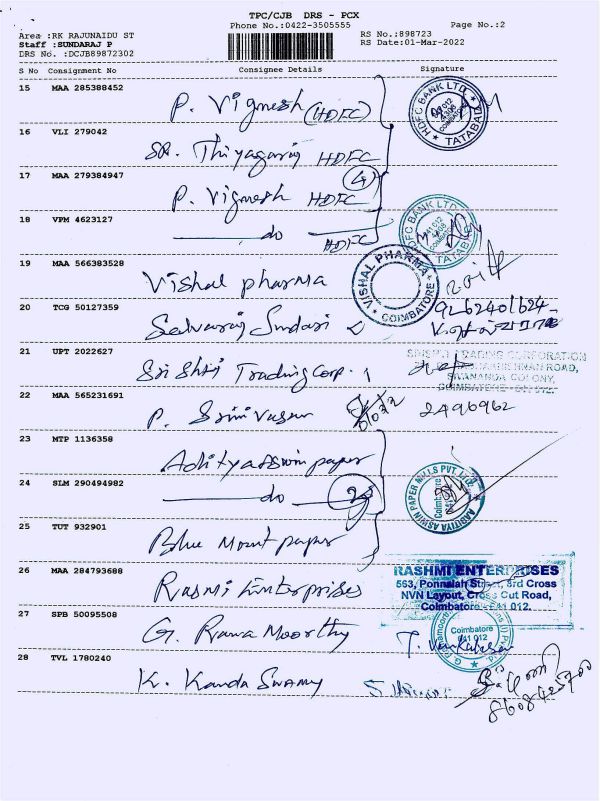 TPC/CJB DRS - PCX
Phone No.:0422-3505555
Page No.:2
Area :RK RAJUNAIDU ST
Staff :SUNDARAJ P
DRS No. :DCJB89872302
RS No.;898723
RS Date:01-Mar-2022
S No Consignment No Consignee Details Signature
15 MAA 285388452
P. Vignesh (HDFC)
HDFC BANK LTD. TATABAD
16 VLI 279042
SR. Thiyagaraj HDFC
17 MAA 279384947
P. Vignesh HDFC
4
18 VPM 4623127
do HDFC
HDFC BANK LTD TATABAD
19 MAA 566383528
Vishal pharma
VISHAL PHARMA COIMBATORE
20 TCG 50127359
Selvaraj Sundari
9262401624
21 UPT 2022627
Sri Shri Trading Corp.
TRADING CORPORATION
ROAD,
SIVANANDA COLONY,
COIMBATORE - 641 012.
22 MAA 565231691
P. Srinivasan
2496962
23 MTP 1136358
Adityaaswin paper
24 SLM 290494982
do
AADITYA ASWIN PAPER MILLS PVT. LTD.
Coimbatore
25 TUT 932901
Blue Mount paper
26 MAA 284793688
Rasmi Enterprises
RASHMI ENTERPRISES
563, Ponnaiah Street, 3rd Cross
NVN Layout, Cross Cut Road,
Coimbatore - 641 012.
27 SPB 50095508
G. Rama Moorthy
T. Venkatesan
Coimbatore
641 012
28 TVL 1780240
K. Kanda Swamy
8608425700